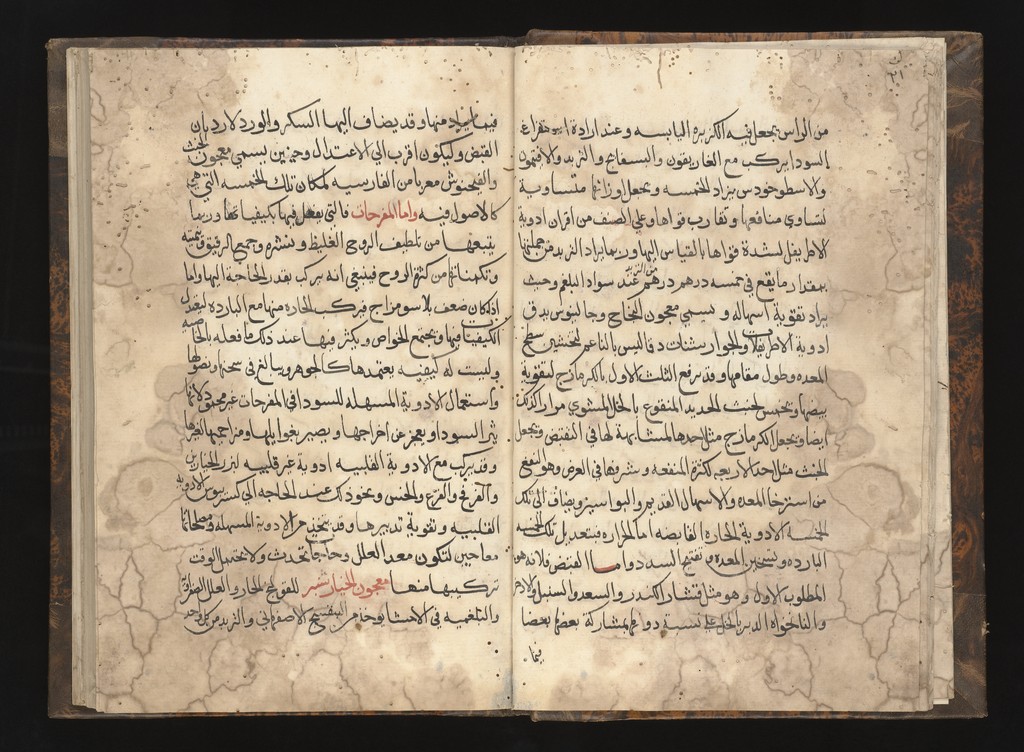 من الراس يجعل فيه الكزبره اليابسه وعند ارادة استفراغ
السودا يركب مع الغاريقون والبسفايج والتربد والافتيمون
والاسطوخودس يزاد للخمسه ويجعل اوزانها متساوية
لتساوي منافعها وتقارب قواها وعلي النصف من اوزان ادوية
الاطريفل لشدة قواها بالقياس اليها وربما يزاد التربد من جملتها
بمقدار ما يقع في خمسه درهم درهم من التربد عند سواد البلغم وحيث
يراد تقوية اسهاله و يسمي معجون النجاح وجالينوس يدق
ادوية الاطريفلات والجوارشنات دقا ليس بالناعم لتخشين سطح
المعده وطول مقامها وقد يرفع الثلث الاول بالكزمازج لتقوية
قبضها ويخص لخبث الحديد المنقوع بالخل المشوي مرارا كذلك
ايضا ويجعل الكزمازج مثل احدها لمشابهة لها في القبض ويجعل
الخبث مثل احد الاربعه لكثرة المنفعه وشرفها في الغرض وهو النفع
من استرخا المعده والاسهال القديم والبواسير ويضاف الي تلك
الخمسه الادوية الحاره القابضه اما الحراره فبتعديل تلك الخمسه
البارده وتسخين المعده وتفتيح السدد واما القبض فلانه هو
المطلوب الاول وهو مثل قشار الكندر والسعد والسنبل والاذخر
والنانخواه المدبر بالخل علي نسبة دوائها بمشاركة بعضها بعضا
فيما
فيما يراد منها وقد يضاف اليها السكر والورد لازديان
القبض وليكون اقرب الي الاعتدال وحينئذ يسمي معجون الخبث
والفنجنوش معربا من الفارسيه لمكان تلك الخمسه التي هي
كالاصول فيه واما المفرحات فالتي يفعل فيها بكيفياتها وربما
يتبعها من تلطيف الروح الغليظ ونشره وجمع الرقيق وتمتينه
وتكمناتها من كثرة الروح فينبغي انه يركب بقدر الحاجة اليها واما
اذا كان ضعف بلا سو مزاج فيركب الحاره منها مع البارده ليعتدل
الكيفيات فيها ويجتمع الخواص ويكثر فيها عند ذلك ما فعله بالخاصيه
وليست له كيفيه يعتمدها كالجوهر ويبالغ في سحقها وتصويلها
واستعمال الادوية المسهله للسودا في المفرحات غير محقق لانها
يثير السودا ويعجز عن اخراجها ويصير بغوايلها ومزاجها لغيرها
وقد يركب مع الادوية القلبيه ادوية غير قلبيه لبزر الخيارين
والقرفي والقرع والخس ونحو ذلك عند الحاجه الي كسر سورة الادوية
القلبيه وتقوية تدبيرها وقد يتخذ من الادوية المسهله ومصلحاتها
معاجين لتكون معدا لعلل وحاجات تحدث ولا يحتمل الوقت
تركيبها منها معجون الخيار شنبر للقولنج الحار والعلل الصفراويه
والبلغميه في الاحشا يوخذ من البنفسج الاصفهاني والتربد من كل واحد